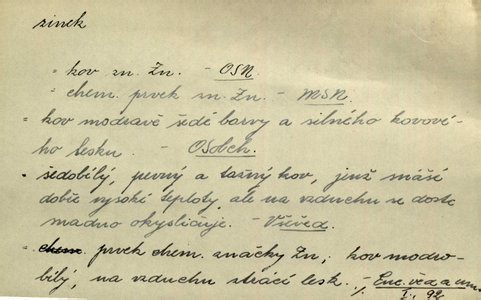 zinek
= kov zn. Zn. - OSN.
= chem. prvek zn. Zn. - MSN.
= kov modravě šedé barvy a silného kovové-
ho lesku. - OSobch.
= šedobílý, pevný a tažný kov, jenž snáší
dobře vysoké teploty, ale na vzduchu se dosti
snadno okysličuje. - Všěvěd.
= chem. prvek chem. značky Zn; kov modro-
bílý, na vzduchu ztrácí lesk. - Enc. věd a um.
I., 92